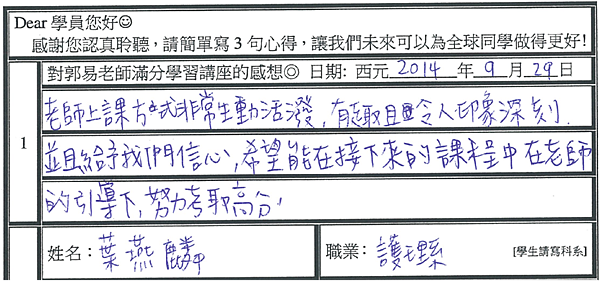 Dear 學員您好☺
感謝您認真聆聽，請簡單寫 3 句心得，讓我們未來可以為全球同學做得更好!
對郭易老師滿分學習講座的感想◎ 日期: 西元 2014 年 9 月 29 日
1
老師上課方式非常生動活潑，有趣且令人印象深刻.
並且給予我們信心，希望能在接下來的課程中在老師
的引導下，努力考取高分.
姓名：葉燕麟 職業：護理系 [學生請寫科系]